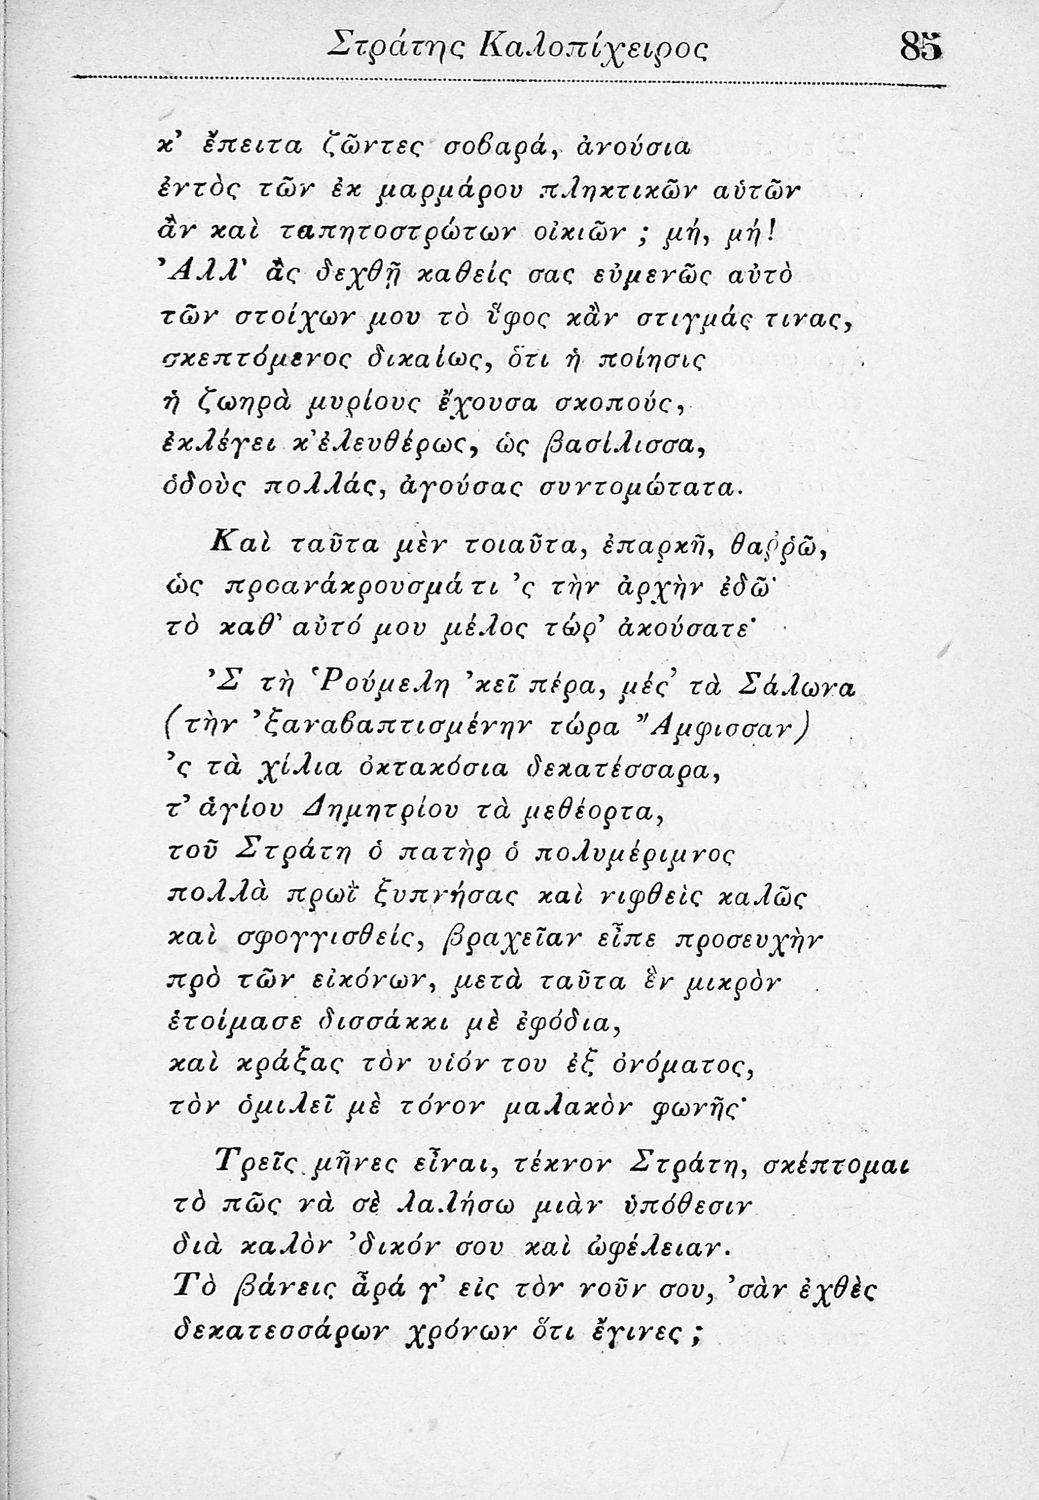 Στράτης Καλοπίχειρος 85
κ’ ἔπειτα ζῶντες σοβαρά, ἀνούσια
ἐντὸς τῶν ἐκ μαρμάρου πληκτικῶν αὐτῶν
ἂν καὶ ταπητοστρώτων οἰκιῶν ; μή, μή!
’Αλλ' ἂς δεχθῇ καθείς σας εὐμενῶς αὐτὸ
τῶν στοίχων μου τὸ ὕφος κἂν στιγμάς τινας,
σκεπτόμενος δικαίως, ὅτι ἡ ποίησις
ἡ ζωηρὰ μυρίους ἔχουσα σκοπούς,
ἐκλέγει κ’ ἐλευθέρως, ὡς βασίλισσα,
ὁδοὺς πολλάς, ἀγούσας συντομώτατα.
Καὶ ταῦτα μὲν τοιαῦτα, ἐπαρκῆ, θαῤῥῶ,
ὡς προανάκρουσμά τι ’ς τὴν ἀρχὴν ἐδῶ·
τὸ καθ' αὑτό μου μέλος τώρ’ ἀκούσατε·
’Σ τὴ Ῥούμελη ’κεῖ πέρα, μές’ τὰ Σάλωνα
(τὴν ’ξαναβαπτισμένην τώρα Ἄμφισσαν)
’ς τὰ χίλια ὀκτακόσια δεκατέσσαρα,
τ’ ἁγίου Δημητρίου τὰ μεθέορτα,
τοῦ Στράτη ὁ πατὴρ ὁ πολυμέριμνος
πολλὰ πρωῒ ξυπνήσας καὶ νιφθεὶς καλῶς
καὶ σφογγισθείς, βραχεῖαν εἶπε προσευχὴν
πρὸ τῶν εἰκόνων, μετὰ ταῦτα ἓν μικρὸν
ἑτοίμασε δισσάκκι μὲ ἐφόδια,
καὶ κράξας τὸν υἱόν του ἐξ ὀνόματος,
τὸν ὁμιλεῖ μὲ τόνον μαλακὸν φωνῆς·
Τρεῖς μῆνες εἶναι, τέκνον Στράτη, σκέπτομαι
τὸ πῶς νὰ σὲ λαλήσω μιὰν ὑπόθεσιν
διὰ καλὸν ’δικόν σου καὶ ὠφέλειαν.
Τὸ βάνεις ἆρά γ’ εἰς τὸν νοῦν σου, ’σὰν ἐχθὲς
δεκατεσσάρων χρόνων ὅτι ἔγινες ;